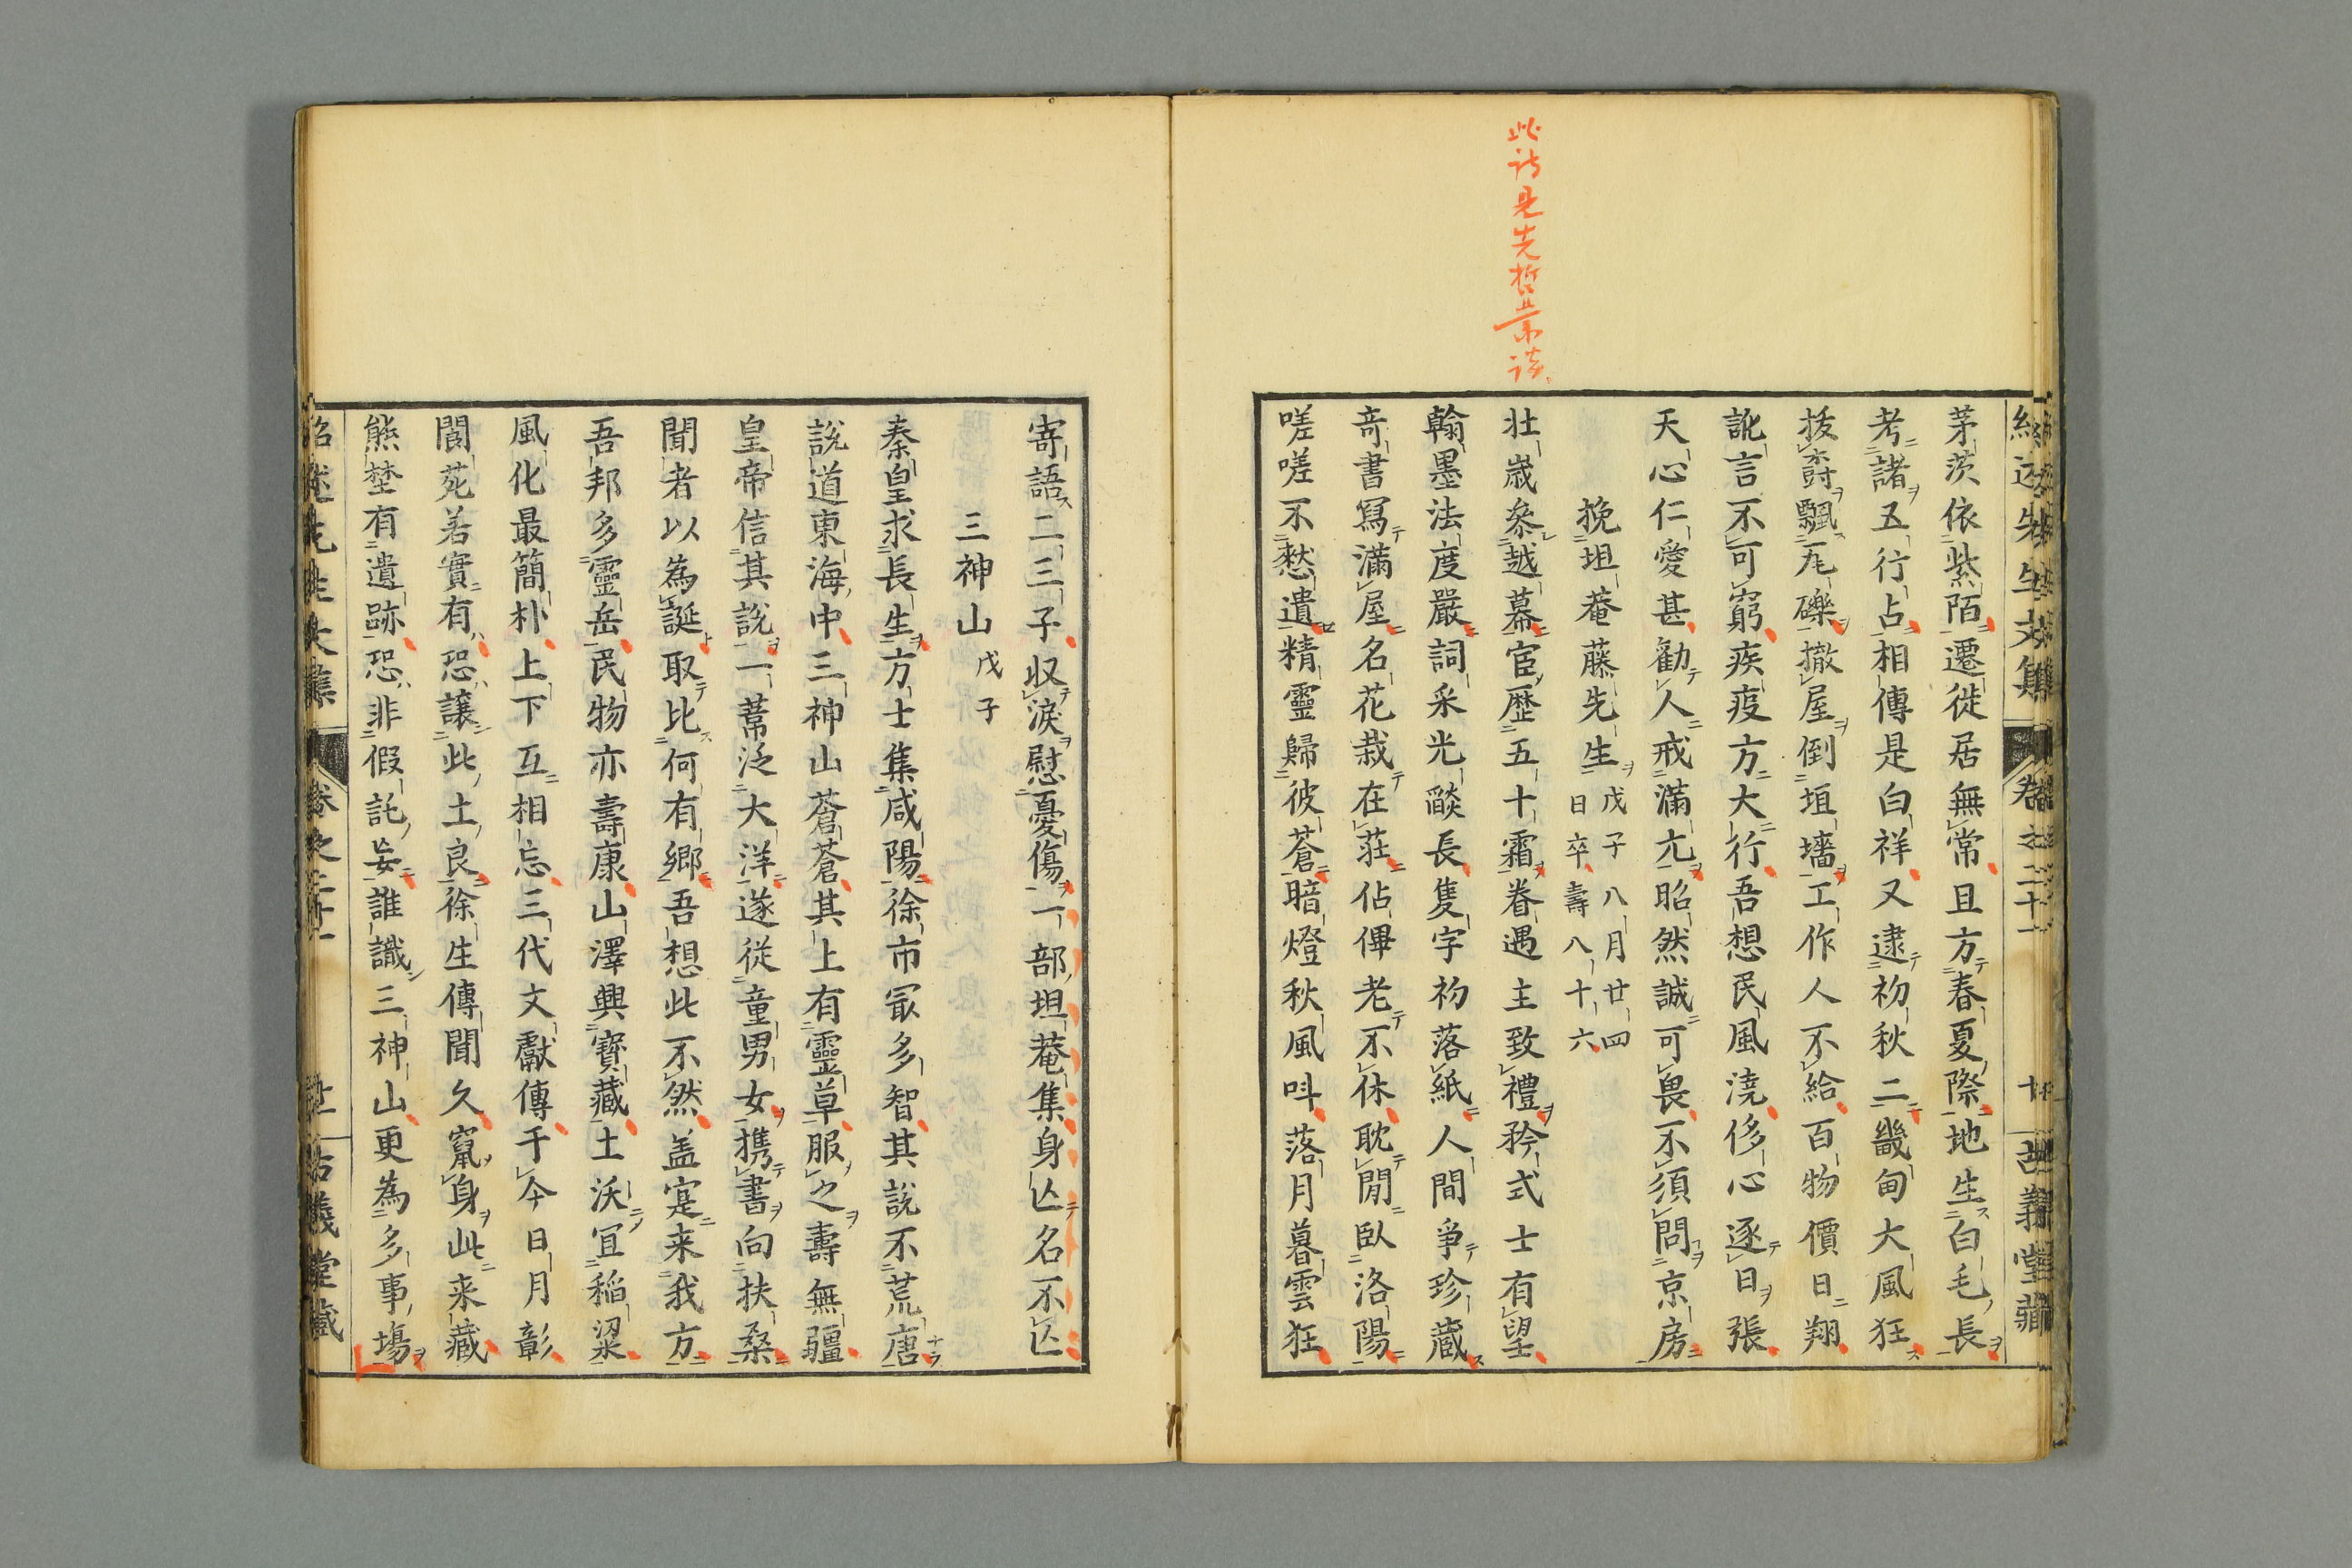 此詩是先哲叢談
茅茨依紫陌遷徙居無常且方春夏際地生白毛長
考諸五行占相傳是白祥又逮初秋二畿甸大風狂
拔樹飄瓦礫撤屋倒垣墻工作人不給百物價日翔
訛言不可窮疾疫方大行吾想民風澆侈心逐日張
天心仁愛甚勸人戒滿亢昭然誠可畏不須問京房
挽坦菴藤先生戊子八月廿四
日卒壽八十六
壯歲叅越幕宦歴五十霜眷遇主致禮矜式士有望
翰墨法度嚴詞采光燄長隻字初落紙人間爭珍藏
竒書冩滿屋名花栽在莊佔俾老不休耽閒臥洛陽
嗟嗟不憖遺精靈歸彼蒼暗燈秋風呌落月暮雲狂
寄語二三子収淚慰憂傷一部坦菴集身亾名不亾
三神山 戊子
秦皇求長生方士集咸陽徐市㝡多智其說不荒唐
説道東海中三神山蒼蒼其上有靈草服之壽無疆
皇帝信其說一葦泛大洋遂從童男女携書向扶桑
聞者以為誕取比何有鄉吾想此不然盖寔来我方
吾邦多靈岳民物亦壽康山澤興寳藏土沃宜稲粱
風化最簡朴上下互相忘三代文獻傳于今日月彰
閬苑若實有恐讓此土良徐生傳聞久竄身此来藏
熊埜有遺跡恐非假託妄誰識三神山更為多事塲
紹述先生文集 卷之二十一 古義堂藏